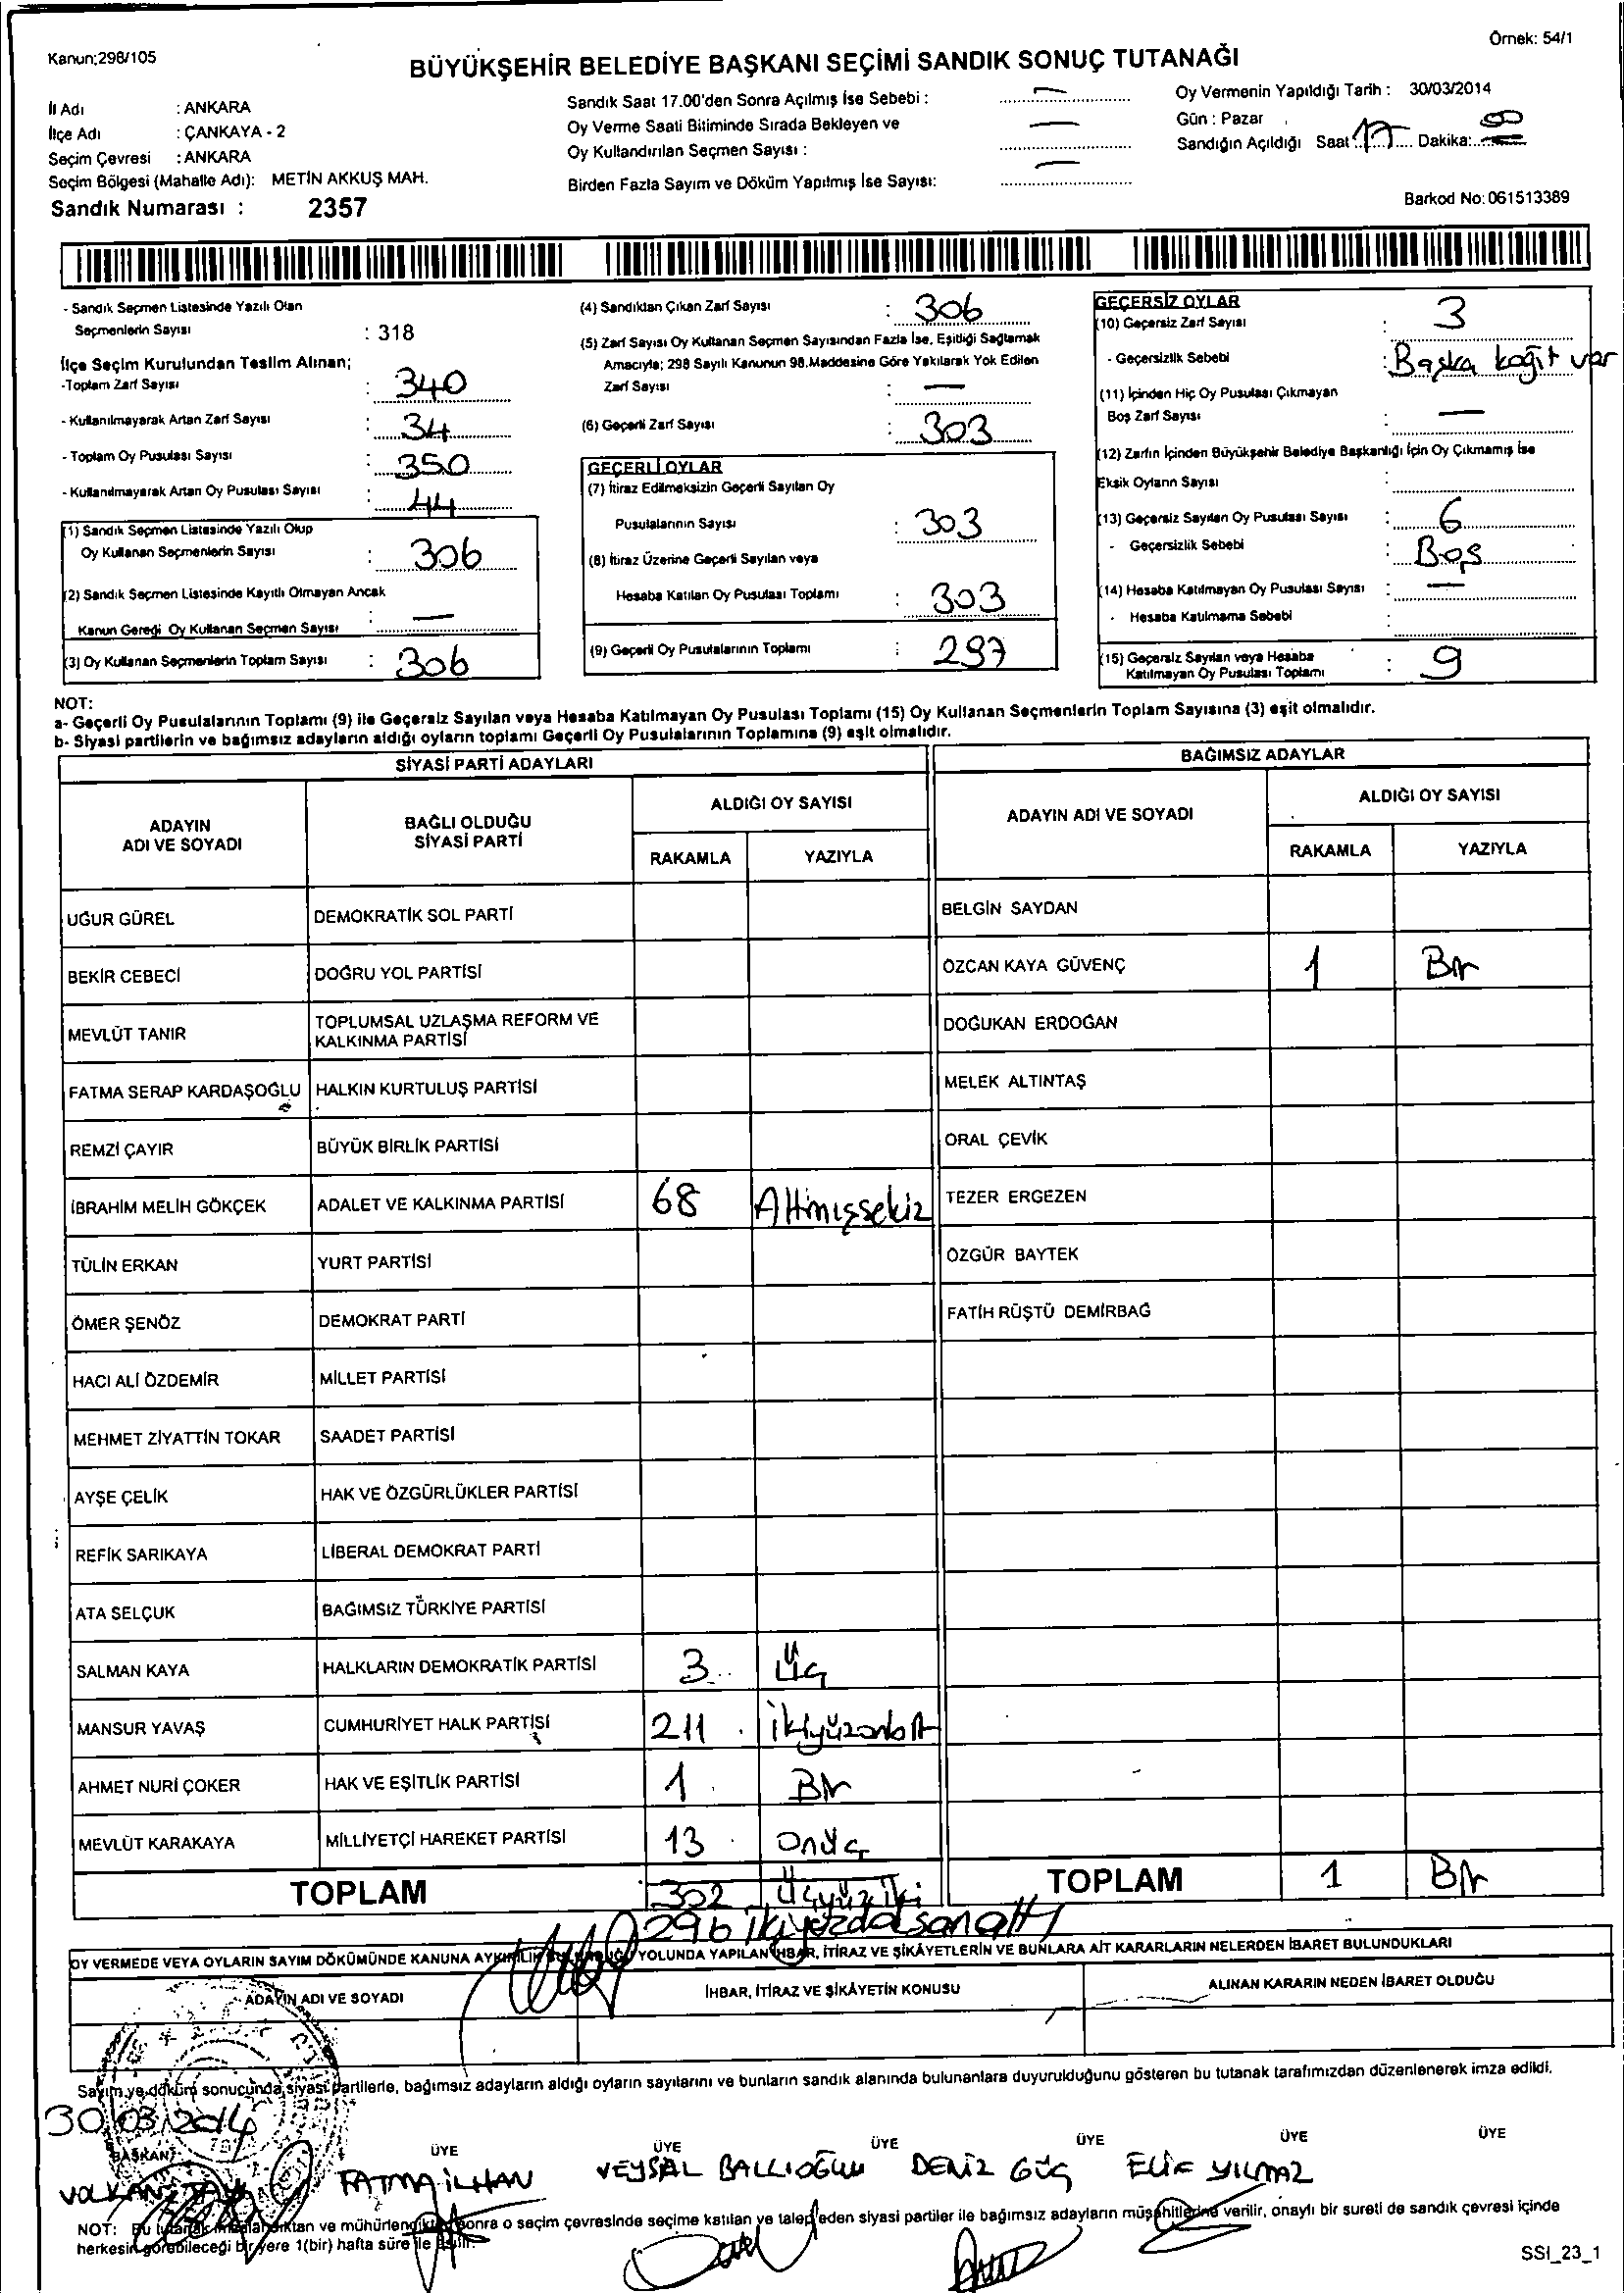 Kanun;298/105
Örnek: 54/1
BÜYÜKŞEHİR BELEDİYE BAŞKANI SEÇİMİ SANDIK SONUÇ TUTANAĞI
İl Adı : ANKARA
İlçe Adı : ÇANKAYA - 2
Seçim Çevresi : ANKARA
Seçim Bölgesi (Mahalle Adı): METİN AKKUŞ MAH.
Sandık Numarası : 2357
Sandık Saat 17.00'den Sonra Açılmış İse Sebebi : —
Oy Verme Saati Bitiminde Sırada Bekleyen ve
Oy Kullandırılan Seçmen Sayısı : —
Birden Fazla Sayım ve Döküm Yapılmış İse Sayısı: —
Oy Vermenin Yapıldığı Tarih : 30/03/2014
Gün : Pazar
Sandığın Açıldığı Saat 17 Dakika:
Barkod No: 061513389
- Sandık Seçmen Listesinde Yazılı Olan
Seçmenlerin Sayısı : 318
İlçe Seçim Kurulundan Teslim Alınan;
-Toplam Zarf Sayısı : 340
- Kullanılmayarak Artan Zarf Sayısı : 34
- Toplam Oy Pusulası Sayısı : 350
- Kullanılmayarak Artan Oy Pusulası Sayısı : 44
(1) Sandık Seçmen Listesinde Yazılı Olup
Oy Kullanan Seçmenlerin Sayısı : 306
(2) Sandık Seçmen Listesinde Kayıtlı Olmayan Ancak
Kanun Gereği Oy Kullanan Seçmen Sayısı : —
(3) Oy Kullanan Seçmenlerin Toplam Sayısı : 306
(4) Sandıktan Çıkan Zarf Sayısı : 306
(5) Zarf Sayısı Oy Kullanan Seçmen Sayısından Fazla İse, Eşitliği Sağlamak
Amacıyla; 298 Sayılı Kanunun 98.Maddesine Göre Yakılarak Yok Edilen
Zarf Sayısı : —
(6) Geçerli Zarf Sayısı : 303
GEÇERLİ OYLAR
(7) İtiraz Edilmeksizin Geçerli Sayılan Oy
Pusulalarının Sayısı : 303
(8) İtiraz Üzerine Geçerli Sayılan veya
Hesaba Katılan Oy Pusulası Toplamı : 303
(9) Geçerli Oy Pusulalarının Toplamı : 297
GEÇERSİZ OYLAR
(10) Geçersiz Zarf Sayısı : 3
- Geçersizlik Sebebi : Başka kağıt var
(11) İçinden Hiç Oy Pusulası Çıkmayan
Boş Zarf Sayısı : —
(12) Zarfın İçinden Büyükşehir Belediye Başkanlığı İçin Oy Çıkmamış İse
Eksik Oyların Sayısı :
(13) Geçersiz Sayılan Oy Pusulası Sayısı : 6
- Geçersizlik Sebebi : Boş
(14) Hesaba Katılmayan Oy Pusulası Sayısı : —
- Hesaba Katılmama Sebebi :
(15) Geçersiz Sayılan veya Hesaba
Katılmayan Oy Pusulası Toplamı : 9
NOT:
a- Geçerli Oy Pusulalarının Toplamı (9) ile Geçersiz Sayılan veya Hesaba Katılmayan Oy Pusulası Toplamı (15) Oy Kullanan Seçmenlerin Toplam Sayısına (3) eşit olmalıdır.
b- Siyasi partilerin ve bağımsız adayların aldığı oyların toplamı Geçerli Oy Pusulalarının Toplamına (9) eşit olmalıdır.
SİYASİ PARTİ ADAYLARI
ADAYIN ADI VE SOYADI BAĞLI OLDUĞU SİYASİ PARTİ ALDIĞI OY SAYISI
RAKAMLA YAZIYLA
UĞUR GÜREL DEMOKRATİK SOL PARTİ
BEKİR CEBECİ DOĞRU YOL PARTİSİ
MEVLÜT TANIR TOPLUMSAL UZLAŞMA REFORM VE KALKINMA PARTİSİ
FATMA SERAP KARDAŞOĞLU HALKIN KURTULUŞ PARTİSİ
REMZİ ÇAYIR BÜYÜK BİRLİK PARTİSİ
İBRAHİM MELİH GÖKÇEK ADALET VE KALKINMA PARTİSİ 68 Altmışsekiz
TÜLİN ERKAN YURT PARTİSİ
ÖMER ŞENÖZ DEMOKRAT PARTİ
HACI ALİ ÖZDEMİR MİLLET PARTİSİ
MEHMET ZİYATTİN TOKAR SAADET PARTİSİ
AYŞE ÇELİK HAK VE ÖZGÜRLÜKLER PARTİSİ
REFİK SARIKAYA LİBERAL DEMOKRAT PARTİ
ATA SELÇUK BAĞIMSIZ TÜRKİYE PARTİSİ
SALMAN KAYA HALKLARIN DEMOKRATİK PARTİSİ 3 Üç
MANSUR YAVAŞ CUMHURİYET HALK PARTİSİ 211 ikiyüzonbir
AHMET NURİ ÇOKER HAK VE EŞİTLİK PARTİSİ 1 Bir
MEVLÜT KARAKAYA MİLLİYETÇİ HAREKET PARTİSİ 13 Onüç
TOPLAM 302 Üçyüziki
296 ikiyüzdoksanaltı
BAĞIMSIZ ADAYLAR
ADAYIN ADI VE SOYADI ALDIĞI OY SAYISI
RAKAMLA YAZIYLA
BELGİN SAYDAN
ÖZCAN KAYA GÜVENÇ 1 Bir
DOĞUKAN ERDOĞAN
MELEK ALTINTAŞ
ORAL ÇEVİK
TEZER ERGEZEN
ÖZGÜR BAYTEK
FATİH RÜŞTÜ DEMİRBAĞ
TOPLAM 1 Bir
OY VERMEDE VEYA OYLARIN SAYIM DÖKÜMÜNDE KANUNA YOLUNDA YAPILAN İHBAR, İTİRAZ VE ŞİKAYETLERİN VE BUNLARA AİT KARARLARIN NELERDEN İBARET BULUNDUKLARI
ADAYIN ADI VE SOYADI İHBAR, İTİRAZ VE ŞİKAYETİN KONUSU ALINAN KARARIN NEDEN İBARET OLDUĞU
Sayım ve döküm sonucunda siyasi partilerle, bağımsız adayların aldığı oyların sayılarını ve bunların sandık alanında bulunanlara duyurulduğunu gösteren bu tutanak tarafımızdan düzenlenerek imza edildi.
30.03.2014
BAŞKAN ÜYE ÜYE ÜYE ÜYE ÜYE ÜYE
VOLKAN FATMA İLHAN VEYSAL BALLIOĞLU DENİZ GÜÇ ELİF YILMAZ
NOT: Bu tutanak ve mühürlendikten sonra o seçim çevresinde seçime katılan ve talep eden siyasi partiler ile bağımsız adayların müşahitlerine verilir, onaylı bir sureti de sandık çevresi içinde
herkesin görebileceği bir yere 1(bir) hafta süre ile asılır.
SSI_23_1